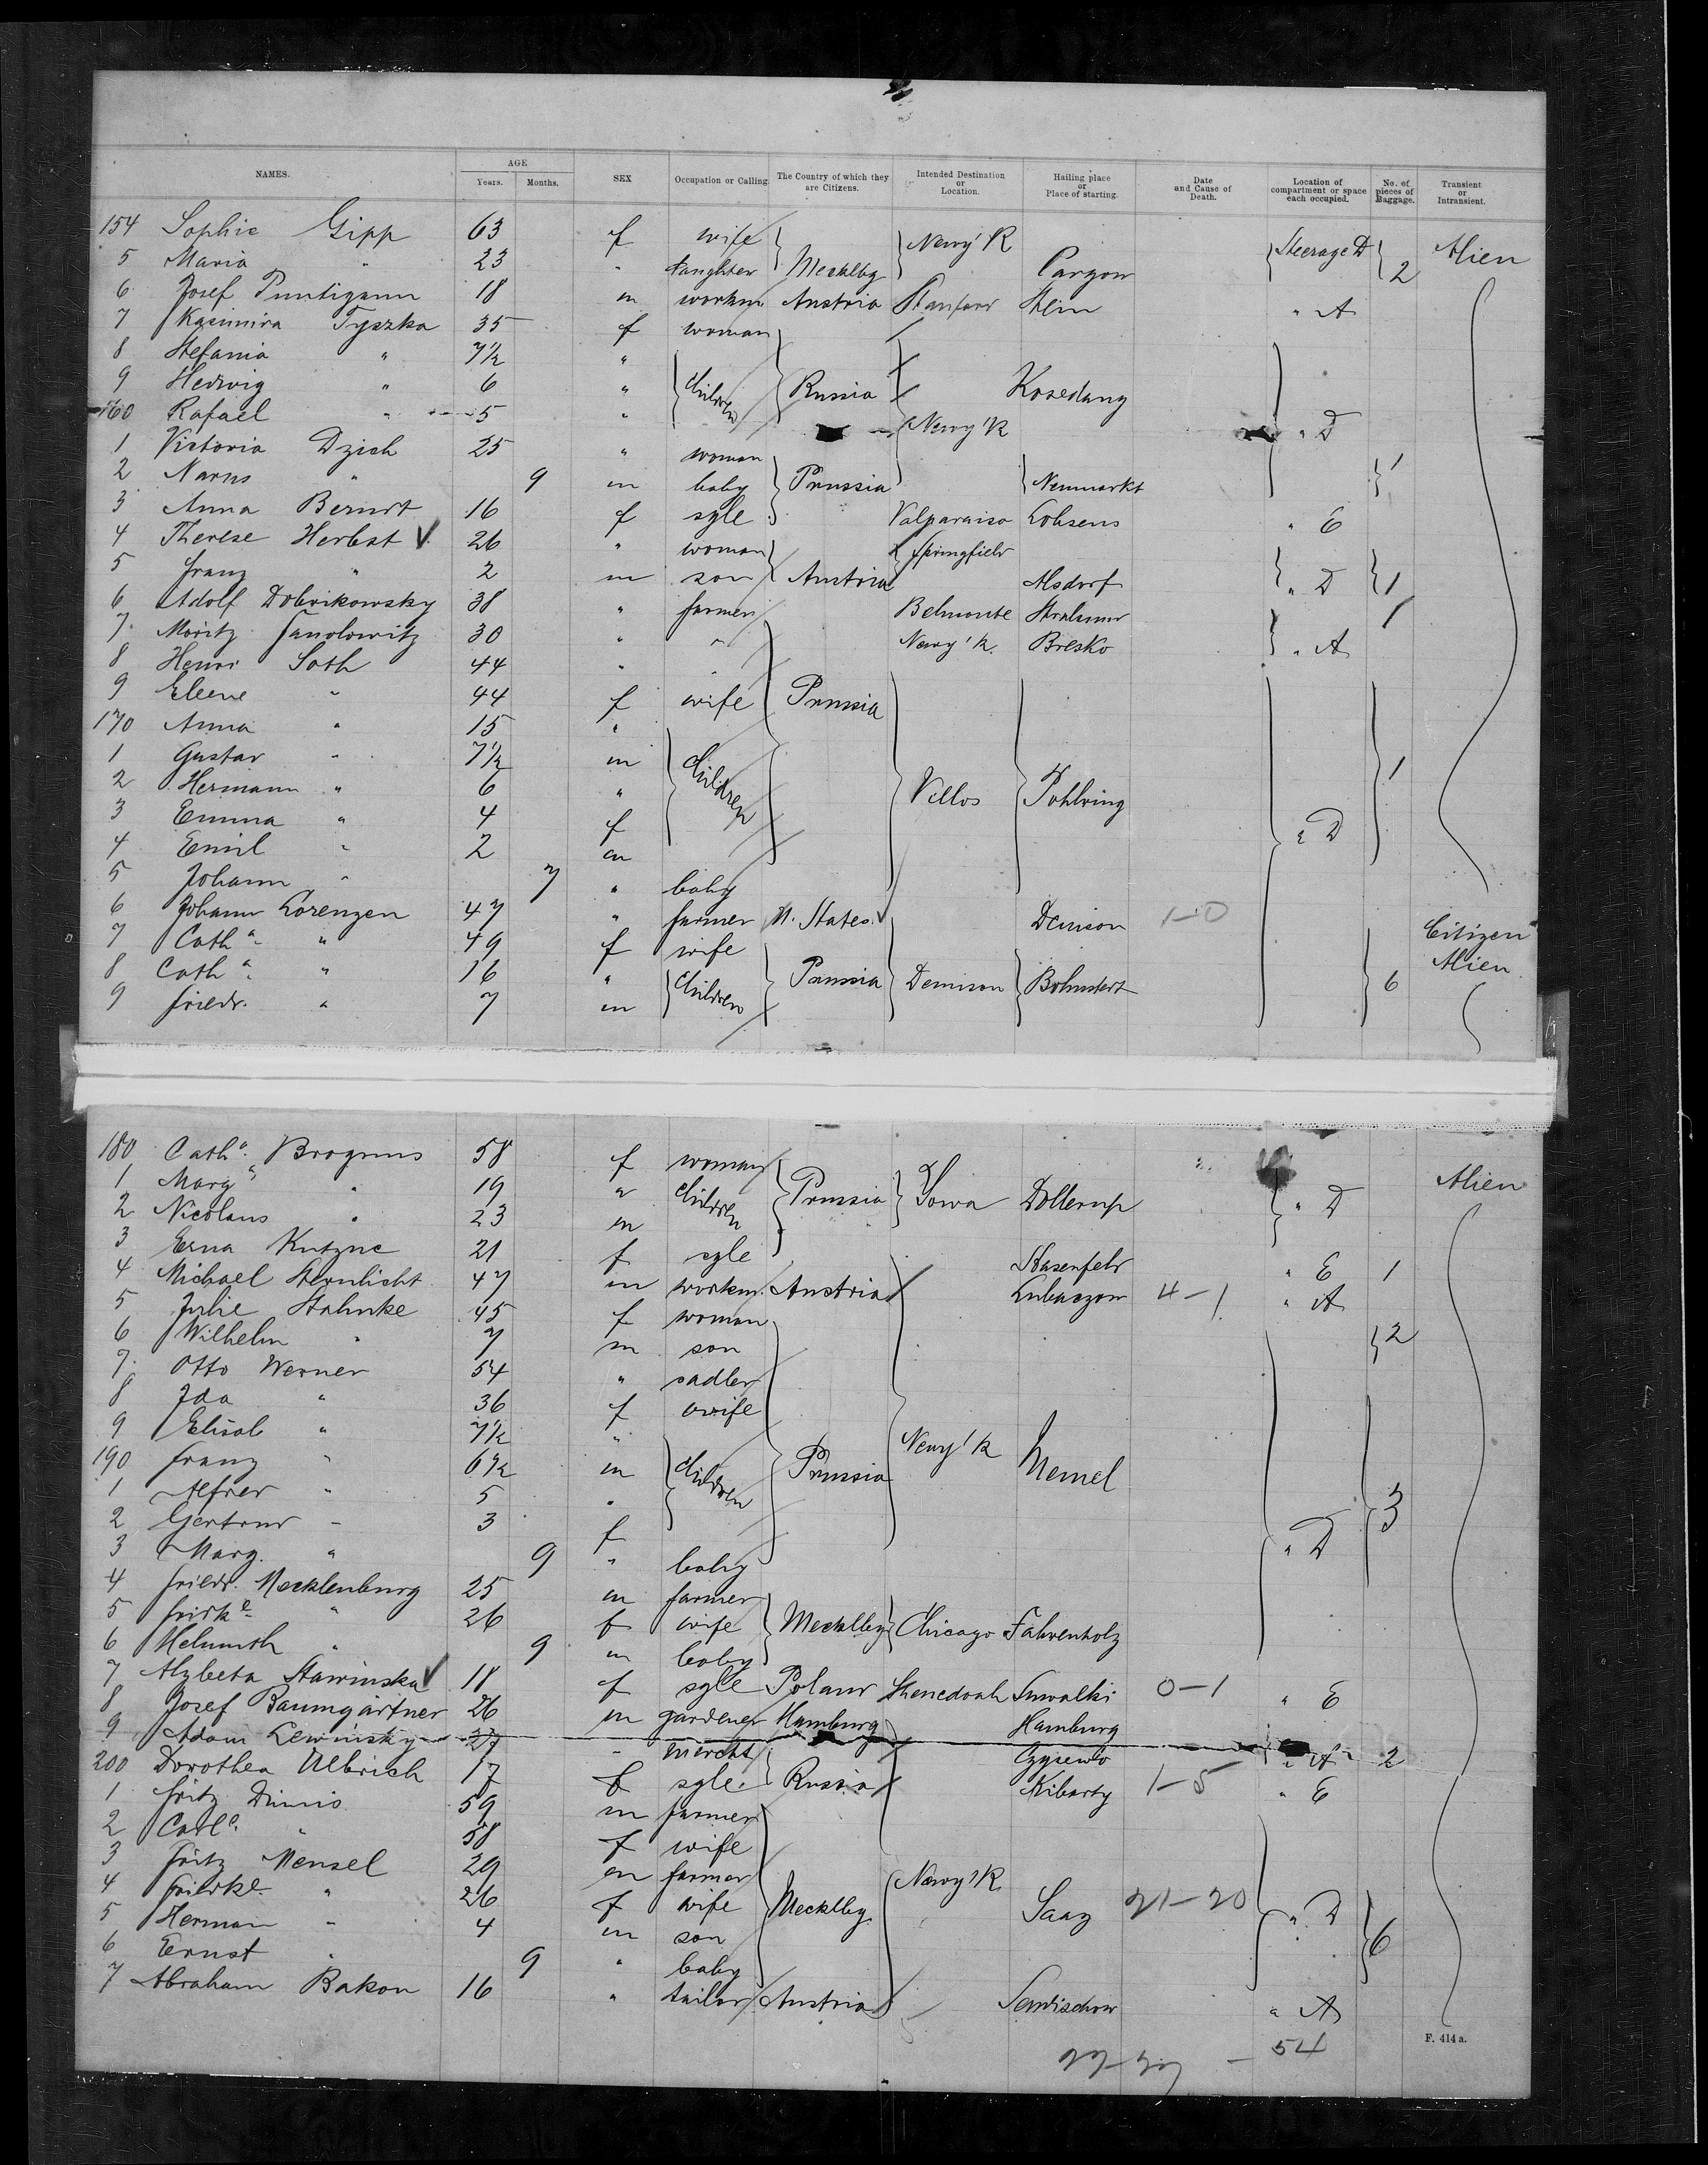 NAMES. AGE Years. Months. SEX Occupation or Calling. The Country of which they are Citizens. Intended Destination or Location. Hailing place or Place of starting. Date and Cause of Death. Location of compartment or space each occupied. No. of pieces of Baggage. Transient or Intransient.
154 Sophie Gipp 63 f wife Newy'k Steerage D Alien
5 Maria " 23 " daughter Mecklbg Cargow 2
6 Josef Puntigann 18 m workm. Austria Stanford Stein " A
7 Kasimira Tyszka 35 f woman
8 Stefania " 7½ "
9 Hedwig " 6 " children Russia
160 Rafael " 5 " Newy'k " D
1 Victoria Dzich 25 " woman
2 " 9 m baby Prussia Neumarkt 1
3 Anna Berndt 16 f sgle Valparaiso Lobsens " E
4 Therese Herbst √ 26 " woman Springfield
5 Franz " 2 m son Austria Alsdorf " D 1
6 Adolf Dobrikowsky 38 " farmer Belmonte 1
7 Moritz 30 " " Newy'k. Bresko " A
8 Henri Soth 44 "
9 Eleene " 44 f wife Prussia
170 Anna " 15 "
1 Gustav " 7½ m children 1
2 Hermann " 6 " Pohlbring
3 Emma " 4 f " D
4 Emil " 2 m
5 Johann " 7 " baby
6 Johann Lorenzen 47 " farmer U. States. √ Denison 1-0 Citizen
7 Cath.a " 49 f wife Alien
8 Cath.a " 16 " children Prussia Denison 6
9 Friedr. " 7 m
180 Cath.a 58 f woman Alien
1 Marg.a " 19 " children Prussia Iowa Dollerup " D
2 Nicolaus " 23 m
3 Erna 21 f sgle Hasenfeld " E 1
4 Michael Sternlicht 47 m workm. Austria 4-1 " A
5 Julie Stahnke 45 f woman
6 Wilhelm " 7 m son 2
7. Otto Werner 54 " sadler
8 Ida " 36 f wife
9 Elisab " 7½ " Newy'k
190 Franz " 6½ m children Prussia Memel
1 Alfred " 5 " 3
2 Gertrud " 3 f " D
3 Marg. " 9 " baby
4 Friedr. Mecklenburg 25 m farmer
5 " 26 f wife Mecklbg Chicago Fahrenholz
6 Helmuth " 9 m baby
7 Alzbeta Stawinska √ 18 f sgle Poland Shenedoah Suwalki 0-1 " E
8 Josef Baumgärtner 26 m gardener Hamburg Hamburg
9 Adam Lewinsky 27 " mercht " A 2
200 Dorothea Ulbrich 17 f sgle. Russia Kibarty 1-5 " E
1 Fritz 59 m farmer
2 " 58 f wife
3 Fritz Mensel 29 m farmer Newy'k
4 " 26 f wife Mecklbg. Saaz 21-20 " D
5 Herman " 4 m son 6
6 Ernst " 9 " baby
7 Abraham Bakon 16 " tailor Austria " A
54
F. 414 a.